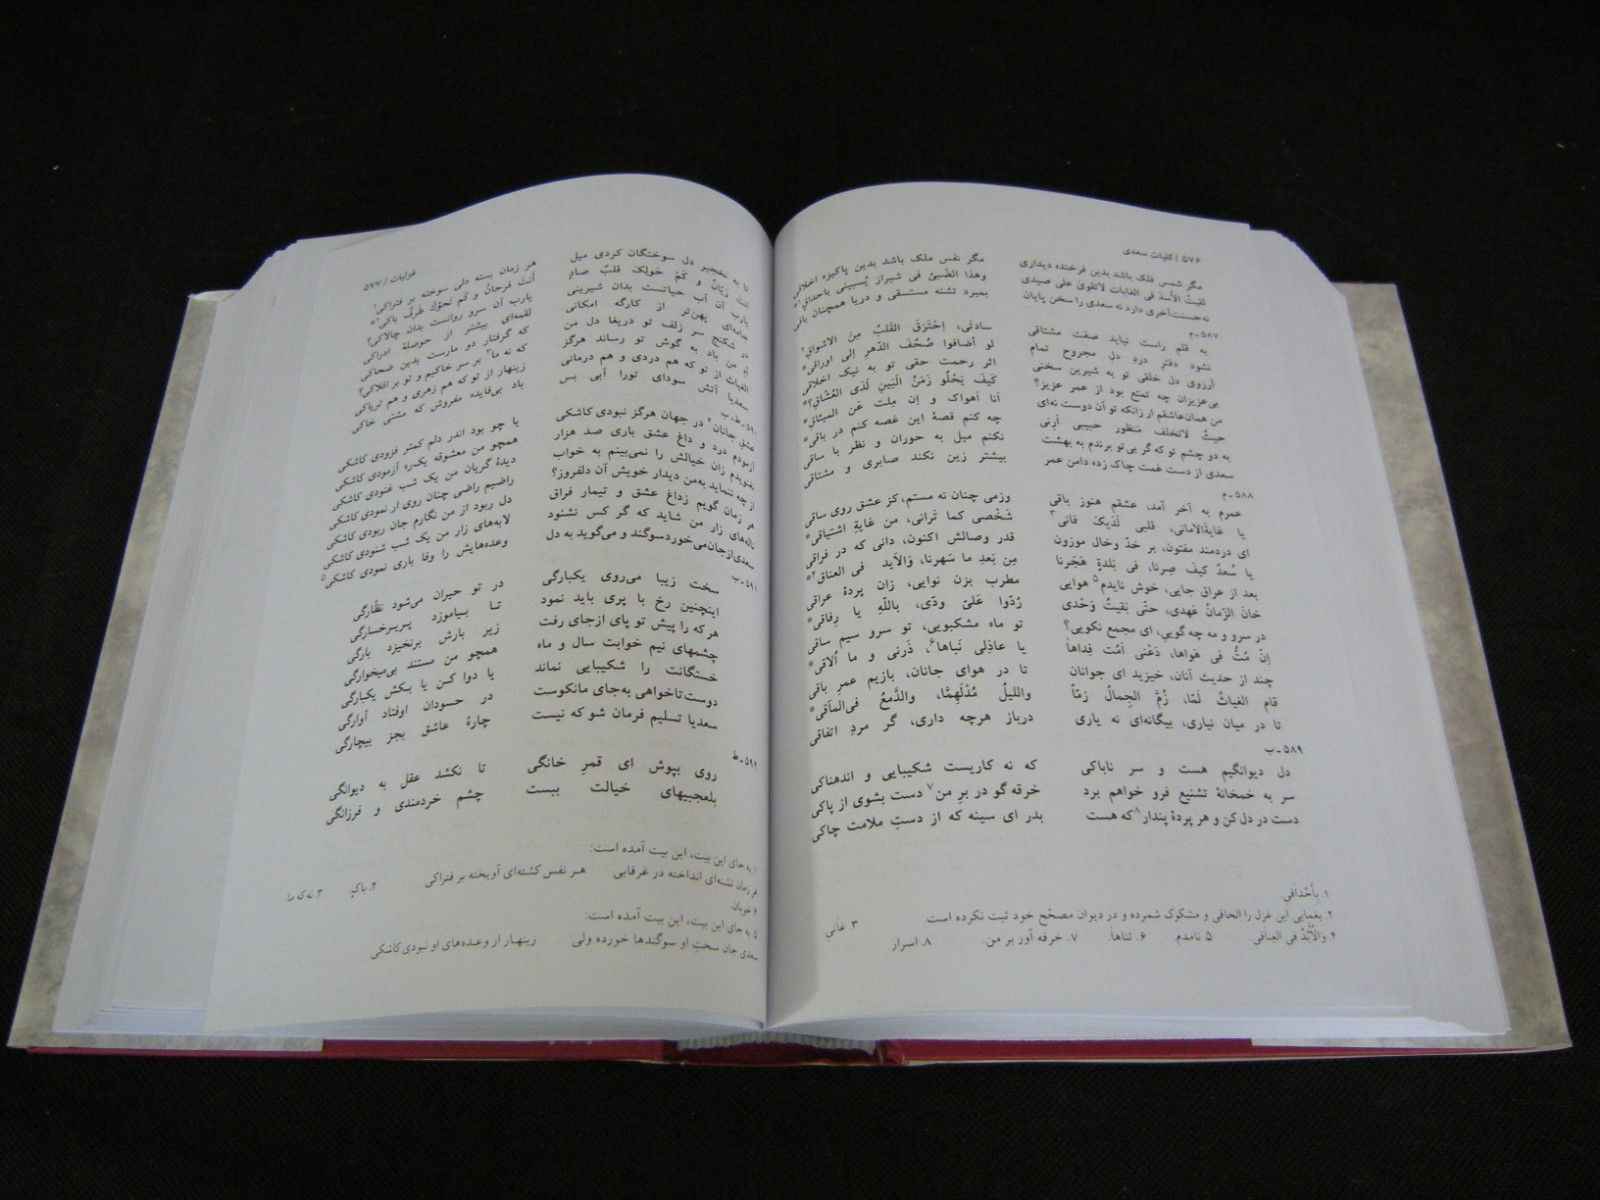 ۵۷۶ / کلیات سعدی
مگر شمس فلک باشد بدین فرخنده دیداری مگر نفس ملک باشد بدین پاکیزه اخلاقی
لقیت الأسد فی الغابات لاتقوی علی صیدی وهذا الظبی فی شیراز یسبینی باحداقی
نه حسنت آخری دارد نه سعدی را سخن پایان بمیرد تشنه مستسقی و دریا همچنان باقی
۵۸۷-م
به قلم راست نیاید صفت مشتاقی سادتی، احترق القلب من الاشواق
نشود دفتر درد دل مجروح تمام لو أضافوا صحف الدهر إلی اوراقی
آرزوی دل خلقی تو به شیرین سخنی اثر رحمت حقی تو به نیک اخلاقی
بی‌عزیزان چه تمتع بود از عمر عزیز؟ کیف یحلو زمن البین لدی العشاق؟
من همان عاشقم ار زانکه تو آن دوست نه‌ای أنا أهواک و إن ملت عن المیثاق
حیث لاتخلف منظور حبیبی أرنی چه کنم قصهٔ این غصه کنم در باقی
به دو چشم تو که گر بی تو برندم به بهشت نکنم میل به حوران و نظر با ساقی
سعدی از دست غمت چاک زده دامن عمر بیشتر زین نکند صابری و مشتاقی
۵۸۸-م
عمرم به آخر آمد، عشقم هنوز باقی وزمی چنان نه مستم، کز عشق روی ساقی
یا غایةالامانی، قلبی لدیک فانی۳ شخصی کما ترانی، من غایة اشتیاقی
ای دردمند مفتون، بر خد وخال موزون قدر وصالش اکنون، دانی که در فراقی
یا سعد کیف صرنا، فی بلدة هجرنا من بعد ما سهرنا، والاید فی العناق۴
بعد از عراق جایی، خوش نایدم۵ هوایی مطرب بزن نوایی، زان پردهٔ عراقی
خان الزمان عهدی، حتی بقیت وحدی ردوا علی ودی، بالله یا رفاقی
در سرو و مه چه گویی، ای مجمع نکویی؟ تو ماه مشکبویی، تو سرو سیم ساقی
إن مت فی هواها، دعنی أمت فداها یا عاذلی نباها۶، ذرنی و ما ألاقی
چند از حدیث آنان، خیزید ای جوانان تا در هوای جانان، بازیم عمر باقی
قام الغیاث لما، زم الجمال زما واللیل مدلهما، والدمع فی المآقی
تا در میان نیاری، بیگانه‌ای نه یاری درباز هرچه داری، گر مرد اتفاقی
۵۸۹-ب
دل دیوانگیم هست و سر ناباکی که نه کاریست شکیبایی و اندهناکی
سر به خمخانهٔ تشنیع فرو خواهم برد خرقه گو در بر من۷ دست بشوی از پاکی
دست در دل کن و هر پردهٔ پندار۸ که هست بدر ای سینه که از دست ملامت چاکی
۱. بأحداقی
۲. یغمایی این غزل را الحاقی و مشکوک شمرده و در دیوان مصحح خود ثبت نکرده است. ۳
۴. والأید فی العناقی ۵. نامدم ۶. ثناها ۷. خرقه آور بر من. ۸. اسرار
غزلیات / ۵۷۷
تا به نخجیر دل سوختگان کردی میل هر زمان بسته دلی سوخته بر فتراکی۱
أنت ریان و کم حولک قلب صاد أنت فرحان و کم نحوک طرف باکی۲
یارب آن آب حیاتست بدان شیرینی یارب آن سرو روانست بدان چالاکی؟
جامه‌ای پهن‌تر از کارگه امکانی لقمه‌ای بیشتر از حوصلهٔ ادراکی
در شکنج سر زلف تو دریغا دل من که گرفتار دو مارست بدین ضحاکی
آه من باد به گوش تو رساند هرگز که نه ما۳ بر سر خاکیم و تو بر افلاکی؟
الغیاث از تو که هم دردی و هم درمانی زینهار از تو که هم زهری و هم تریاکی
سعدیا آتش سودای تورا آبی بس باد بی‌فایده مفروش که مشتی خاکی
۵۹۰-ط،ب
عشق جانان۴ در جهان هرگز نبودی کاشکی یا چو بود اندر دلم کمتر فزودی کاشکی
آزمودم درد و داغ عشق باری صد هزار همچو من معشوقه یک‌ره آزمودی کاشکی
نغنویدم زان خیالش را نمی‌بینم به خواب دیدهٔ گریان من یک شب غنودی کاشکی
از چه ننماید به‌من دیدار خویش آن دلفروز؟ راضیم راضی چنان روی ار نمودی کاشکی
هر زمان گویم زداغ عشق و تیمار فراق دل ربود از من نگارم جان ربودی کاشکی
ناله‌های زار من شاید که گر کس نشنود لابه‌های زار من یک شب شنودی کاشکی
سعدی ازجان می‌خورد سوگند و می‌گوید به دل وعده‌هایش را وفا باری نمودی کاشکی۵
۵۹۱-ب
سخت زیبا می‌روی یکبارگی در تو حیران می‌شود نظارگی
اینچنین رخ با پری باید نمود تا بیاموزد پریرخسارگی
هر که را پیش تو پای ازجای رفت زیر بارش برنخیزد بارگی
چشمهای نیم خوابت سال و ماه همچو من مستند بی‌میخوارگی
خستگانت را شکیبایی نماند یا دوا کن یا بکش یکبارگی
دوست تاخواهی به‌جای مانکوست در حسودان اوفتاد آوارگی
سعدیا تسلیم فرمان شو که نیست چارهٔ عاشق بجز بیچارگی
۵۹۲-ط
روی بپوش ای قمر خانگی تا نکشد عقل به دیوانگی
بلعجبیهای خیالت ببست چشم خردمندی و فرزانگی
۱. به جای این بیت، این بیت آمده است:
هر زمان تشنه‌ای انداخته در غرقابی هر نفس کشته‌ای آویخته بر فتراکی ۲. باک ۳. نه که ما
۴. خوبان.
۵. به جای این بیت، این بیت آمده است:
سعدی جان سخت او سوگندها خورده ولی زینهار از وعده‌های او نبودی کاشکی